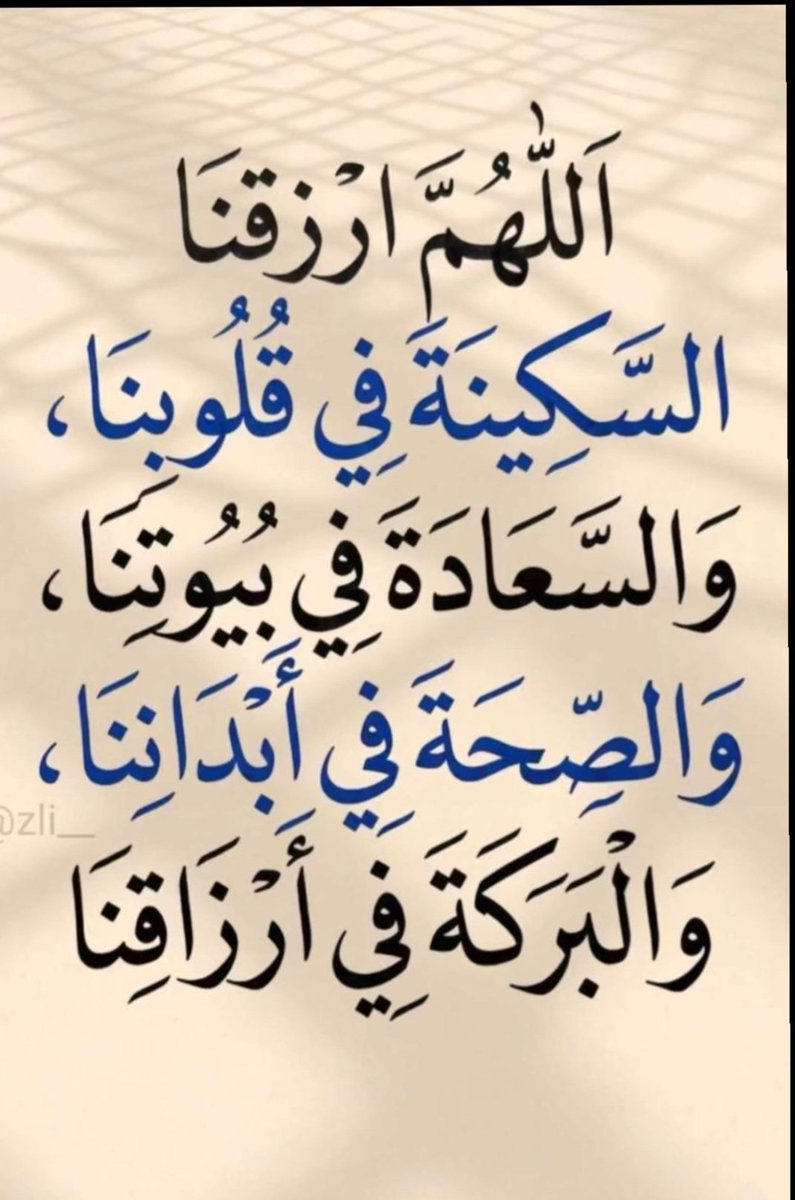 اَللّٰهُمَّ ارْزقنَا
السَّكِينَةَ فِي قُلُوبِنَا،
وَالسَّعَادَةَ فِي بُيُوتِنَا،
وَالصِّحَةَ فِي أَبْدَانِنَا،
@zli__
وَالْبَرَكَةَ فِي أَرْزَاقِنَا